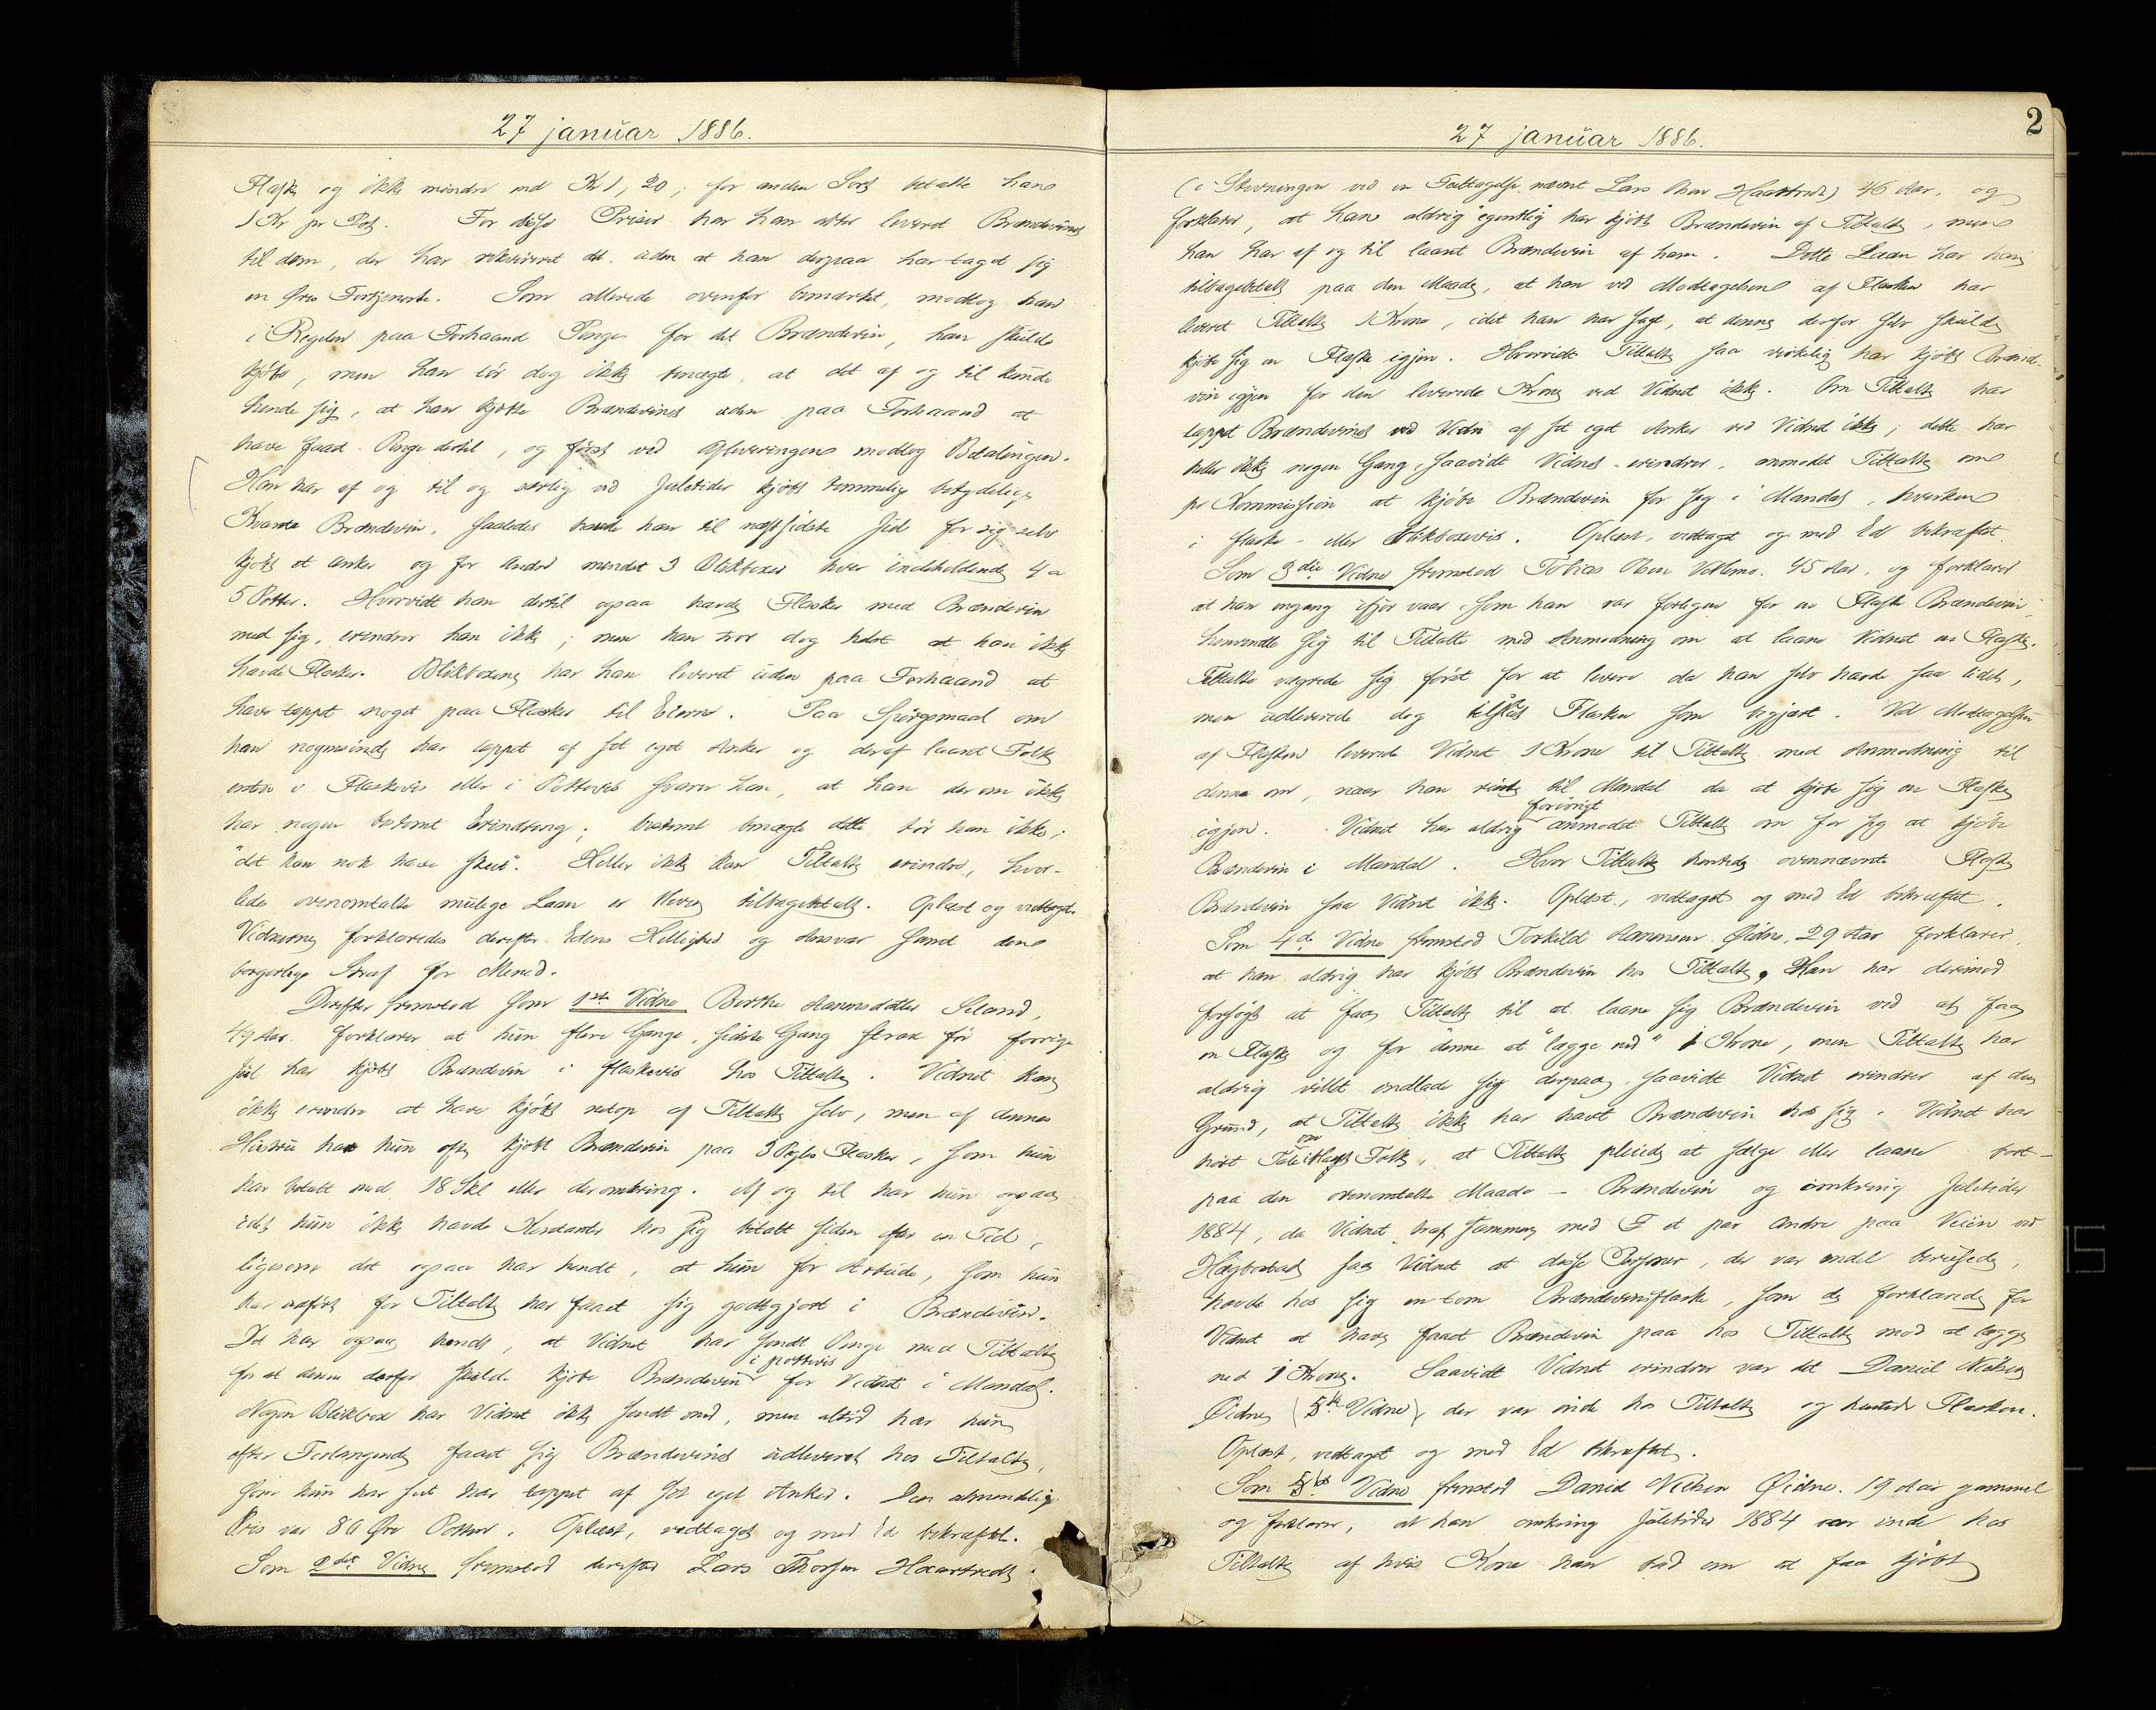 27 januar 1886.
Flaske og ikke mindre end Kr 1,20; for anden Sort betalte han
1 Kr pr Pot. For disse Priser har han atter leveret Brændevinet
til dem, der har rekvireret det uden at han derpaa har taget sig
en Øres Fortjeneste. Som allerede ovenfor bemærket, modtog han
i Regelen paa Forhaand Penge for det Brændevin, han skulde
kjøbe, men han tør dog ikke benægte, at det af og til kunde
hende sig, at han kjøbte Brændevinet uden paa Forhaand at
have faaet Penge dertil, og først ved Afleveringen modtog Betalingen.
Han har af og til og særlig ved Juletider kjøbt temmelig betydelige
Kvanta Brændevin, saaledes havde han til næstsidste Jul for sig selv
kjøbt et Anker og for Andre mindst 3 Blikboxer hver indeholdende 4 a
5 Potter. Hvorvidt han dertil ogsaa havde Flasker med Brændevin
med sig, erindrer han ikke; men han tror dog helst at han ikke
havde Flasker. Blikboxene har han leveret uden paa Forhaand at
have tappet noget paa Flasker til Eierne. Paa Spørgsmaal om
han nogensinde har tappet af sit eget Anker og deraf laant Folk
enten i Flaskevis eller i Pottevis svarer han, at han derom ikke
har nogen bestemt Erindring; bestemt benægte dette tør han ikke;
"det kan nok have skeet". Heller ikke kan Tiltalte erindre, hvor-
ledes ovenomtalte mulige Laan er bleven tilbagebetalt. Oplæst og vedtaget.
Vidnerne forklaredes derefter Edens Hellighed og Ansvar samt den
borgerlige Straf for Mened.
Derefter fremstod som 1ste Vidne Berthe Aanensdatter Seland,
49 Aar. Forklarer at hun flere Gange, sidste Gang strax før forrige
Jul har kjøbt Brændevin i flaskevis hos Tiltalte. Vidnet kan
ikke erindre at have kjøbt netop af Tiltalte selv, men af dennes
Hustru har hun ofte kjøbt Brændevin paa 3 Pægles Flasker, som hun
har betalt med 18 Skl eller deromkring. Af og til har hun ogsaa
idet hun ikke havde Kontanter hos sig betalt siden efter en Tid,
ligesom det ogsaa har hendt, at hun for Arbeide, som hun
har udført for Tiltalte har faaet sig godtgjort i Brændevin.
Det har ogsaa hendt, at Vidnet har sendt Penge med Tiltalte
i pottevis
for at denne derfor skulde kjøbe Brændevin for Vidnet i Mandal.
Nogen Blikbox har Vidnet ikke sendt med, men altid har hun
efter Forlangende faaet sig Brændevinet udleveret hos Tiltalte,
som hun har seet har tappet af sit eget Anker. Den almindelige
Pris var 80 Øre Potten. Oplæst, vedtaget og med Ed bekræftet.
Som 2det Vidne fremstod derefter Lars Thorsen Haartvedt
2
27 januar 1886.
(i Stevningen ved en Feiltagelse nævnt Lars Olsen Haartvedt) 46 Aar, og
forklarer, at han aldrig "egentlig" har kjøbt Brændevin af Tiltalte, men
han har af og til laant Brændevin af ham. Dette Laan har han
tilbagebetalt paa den Maade, at han ved Modtagelsen af Flasken har
leveret Tiltalte 1 Krone, idet han har sagt, at denne derfor selv skulde
kjøbe sig en Flaske igjen. Hvorvidt Tiltalte saa virkelig har kjøbt Brænde-
vin igjen for den leverede Krone ved Vidnet ikke. Om Tiltalte har
tappet Brændevinet af sit eget Anker ved Vidnet ikke; dette har
heller ikke nogen Gang, saavidt Vidnet erindrer, anmodet Tiltalte om
pr Kommission at kjøbe Brændevin for sig i Mandal, hverken
i flaske- eller blikboxevis. Oplæst, vedtaget og med Ed bekræftet.
Som 3die Vidne fremstod Tobias Olsen 45 Aar, og forklarer
at han engang ifjor vaar, som han var forlegen for en Flaske Brændevin,
henvendte sig til Tiltalte med Anmodning om at laane Vidnet en Flaske.
Tiltalte vægrede sig først for at levere da han selv havde saa lidet,
men udleverede dog tilsidst Flasken som begjært. Ved Modtagelsen
af Flasken leverede Vidnet 1 Krone til Tiltalte med Anmodning til
denne om, naar han reiste til Mandal da at kjøbe sig en Flaske
forøvrigt
igjen. Vidnet har aldrig anmodet Tiltalte om for sig at kjøbe
Brændevin i Mandal. Hvor Tiltalte hentede ovennævnte Flaske
Brændevin saa Vidnet ikke. Oplæst, vedtaget og med Ed bekræftet.
Som 4de Vidne fremstod Torkild Aanensen Øidne, 29 Aar forklarer,
at han aldrig har kjøbt Brændevin hos Tiltalte. Han har derimod
forsøgt at faa Tiltalte til at laane sig Brændevin ved at faa
en Flaske og for denne at "lægge ned" 1 Krone, men Tiltalte har
aldrig villet indlade sig derpaa, saavidt Vidnet erindrer af den
Grund, at Tiltalte ikke har havt Brændevin hos sig. Vidnet har
om
hørt Tale blandt Folk, at Tiltalte pleiede at sælge eller laane bort -
paa den ovenomtalte Maade - Brændevin og omkring Juletider
1884, da Vidnet traf sammen med et par Andre paa Veien ved
saa Vidnet at disse Personer, der var endel berusede,
havde hos sig en tom Brændevinsflaske, som de forklarede for
Vidnet at have faaet Brændevin paa hos Tiltalte mod at lægge
ned 1 Krone. Saavidt Vidnet erindrer var det Daniel Nilsen
Øidne (5te Vidne), der var inde hos Tiltalte og hentede Flasken.
Oplæst, vedtaget og med Ed bekræftet.
Som 5te Vidne fremstod Daniel Nilsen Øidne. 19 Aar gammel
og forklarer, at han omkring Juletider 1884 var inde hos
Tiltalte af hvis Kone han bad om at faa kjøbt